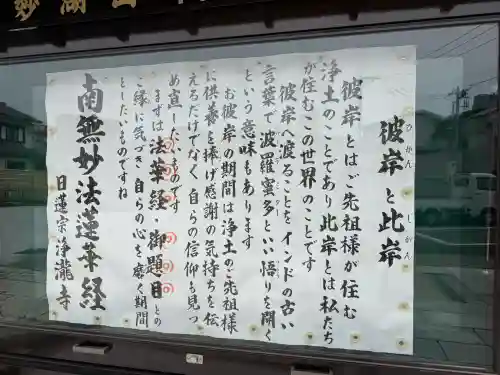 彼岸と此岸
ひがん
しがん
彼岸とはご先祖様が住む
浄土のことであり此岸とは私たち
が住むこの世界のことです
彼岸へ渡ることをインドの古い
言葉で波羅蜜多といい悟りを開く
という意味もあります
お彼岸の期間は浄土のご先祖様
に供養を捧げ感謝の気持ちを伝
えるだけでなく自らの信仰も見つ
め直したいものです
まずは法華経・御題目との
ご縁に気づき自らの心を磨く期間
としたいものですね
南無妙法蓮華経
日蓮宗浄瀧寺